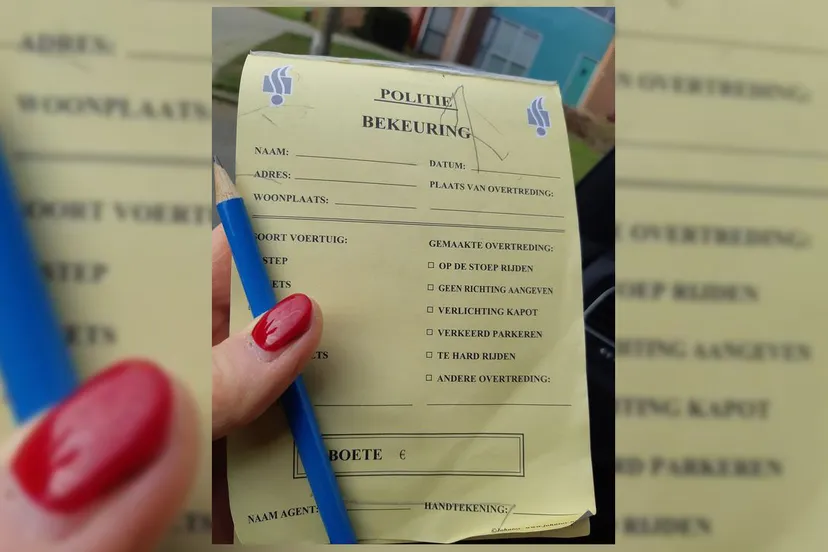 POLITIE
BEKEURING
NAAM:
DATUM:
ADRES:
PLAATS VAN OVERTREDING:
WOONPLAATS:
SOORT VOERTUIG:
GEMAAKTE OVERTREDING:
STEP
OP DE STOEP RIJDEN
ETS
GEEN RICHTING AANGEVEN
VERLICHTING KAPOT
VERKEERD PARKEREN
ETS
TE HARD RIJDEN
ANDERE OVERTREDING:
BOETE €
NAAM AGENT:
HANDTEKENING: